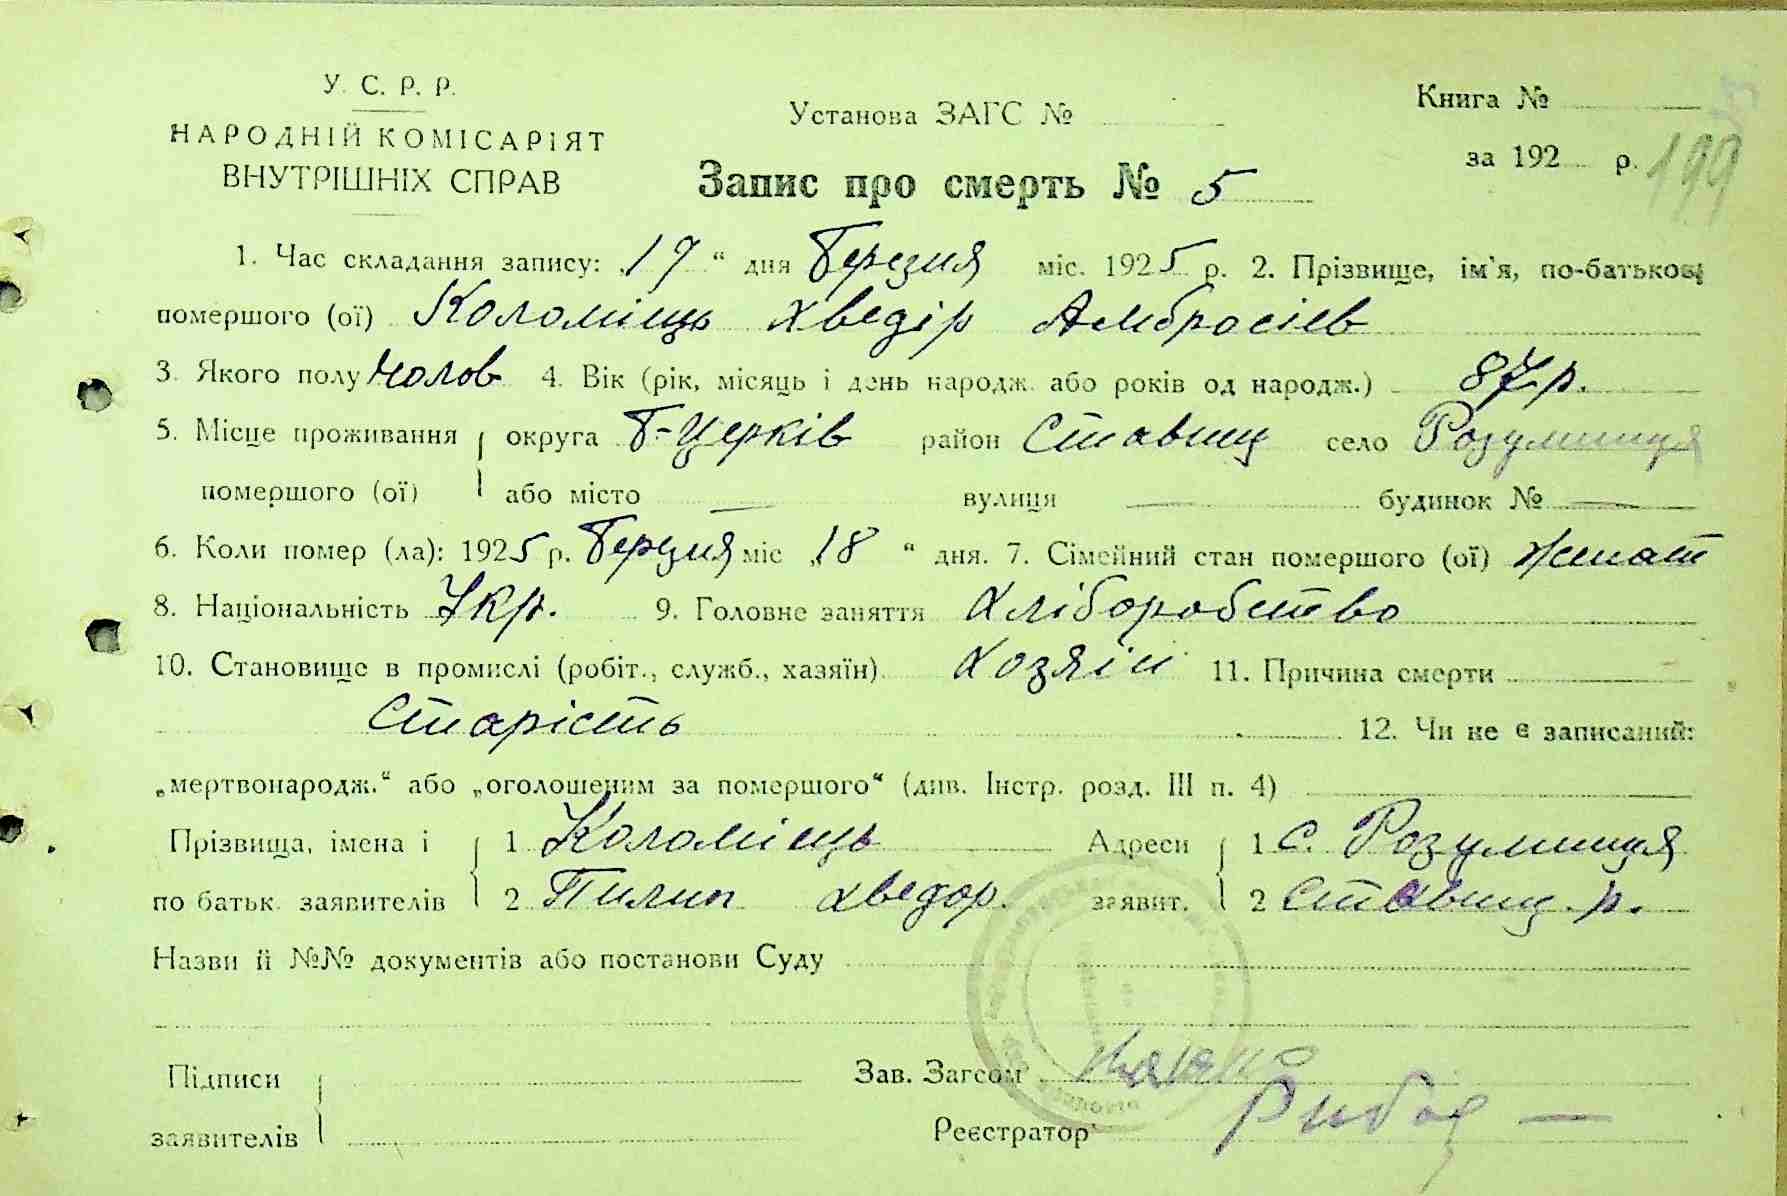 У. С. Р. Р.
НАРОДНІЙ КОМІСАРІЯТ
ВНУТРІШНІХ СПРАВ
Установа ЗАГС №
Книга №
за 192 р. 199
Запис про смерть № 5
1. Час складання запису: „19“ дня Березня міс. 1925 р. 2. Прізвище, ім'я, по-батькові
помершого (ої) Коломієць Хведір Амбросіев
3. Якого полу Молов 4. Вік (рік, місяць і день народж. або років од народж.) 87 р.
5. Місце проживання округа Б-Церків район Ставищ село Розумниця
помершого (ої) або місто вулиця будинок №
6. Коли помер (ла): 1925 р. Березня міс „18“ дня. 7. Сімейний стан помершого (ої) Женат
8. Національність Укр. 9. Головне заняття Хліборобство
10. Становище в промислі (робіт., служб., хазяїн). Хозяін 11. Причина смерти
Старість 12. Чи не є записаний:
„мертвонародж.“ або „оголошеним за помершого“ (див. Інстр. розд. III п. 4)
Прізвища, імена і 1 Коломієць Адреси 1 с. Розумниця
по батьк. заявителів 2 Пилип Хведор. заявит. 2 Ставищ. р.
Назви й №№ документів або постанови Суду
Підписи Зав. Загсом
заявителів Реєстратор